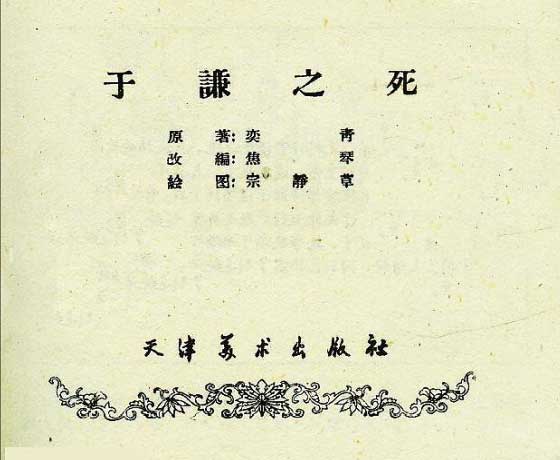 于謙之死
原著：奕青
改編：焦琴
絵图：宗靜草
天津美术出版社